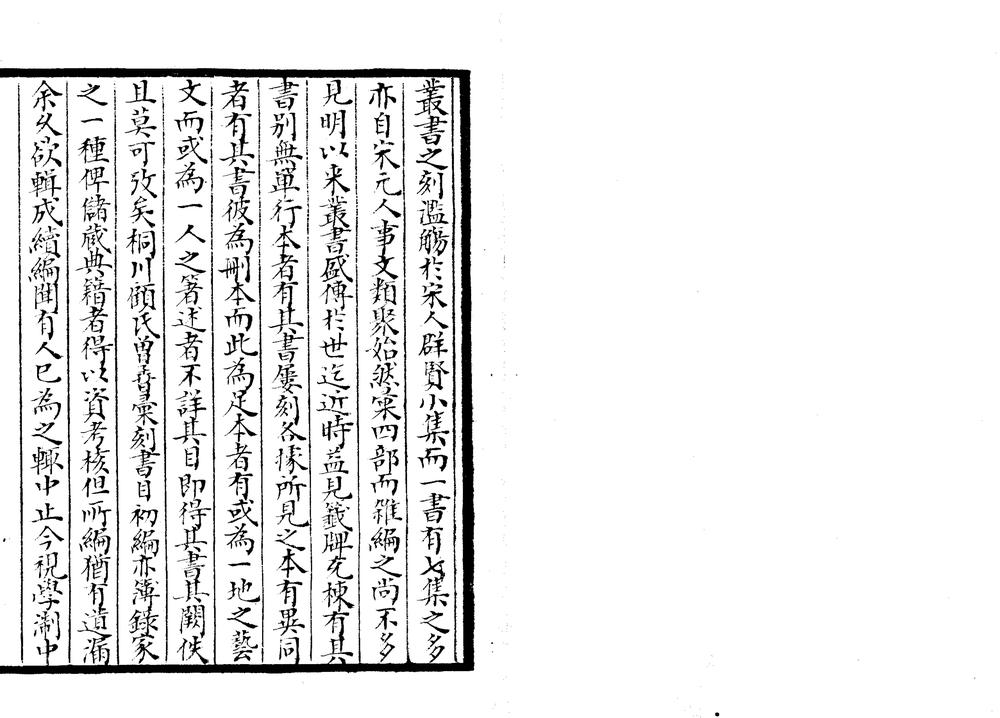 叢書之刻濫觴於宋人群賢小集而一書有七集之多
亦自宋元人事文類聚始然稾四部而雜編之尚不多
見明以来叢書盛傳於世迄近時益見籤牌充棟有其
書別無單行本者有其書屡刻各㨿所見之本有異同
者有其書彼為刪本而此為足本者有或為一地之藝
文而或為一人之箸述者不詳其目即得其書其闕佚
且莫可攷矣桐川顧氏曽彚刻書目初編亦簿錄家
之一種俾儲蔵典籍者得以資考核但所編猶有遺漏
余久欲輯成續編聞有人已為之輙中止今視學淛中